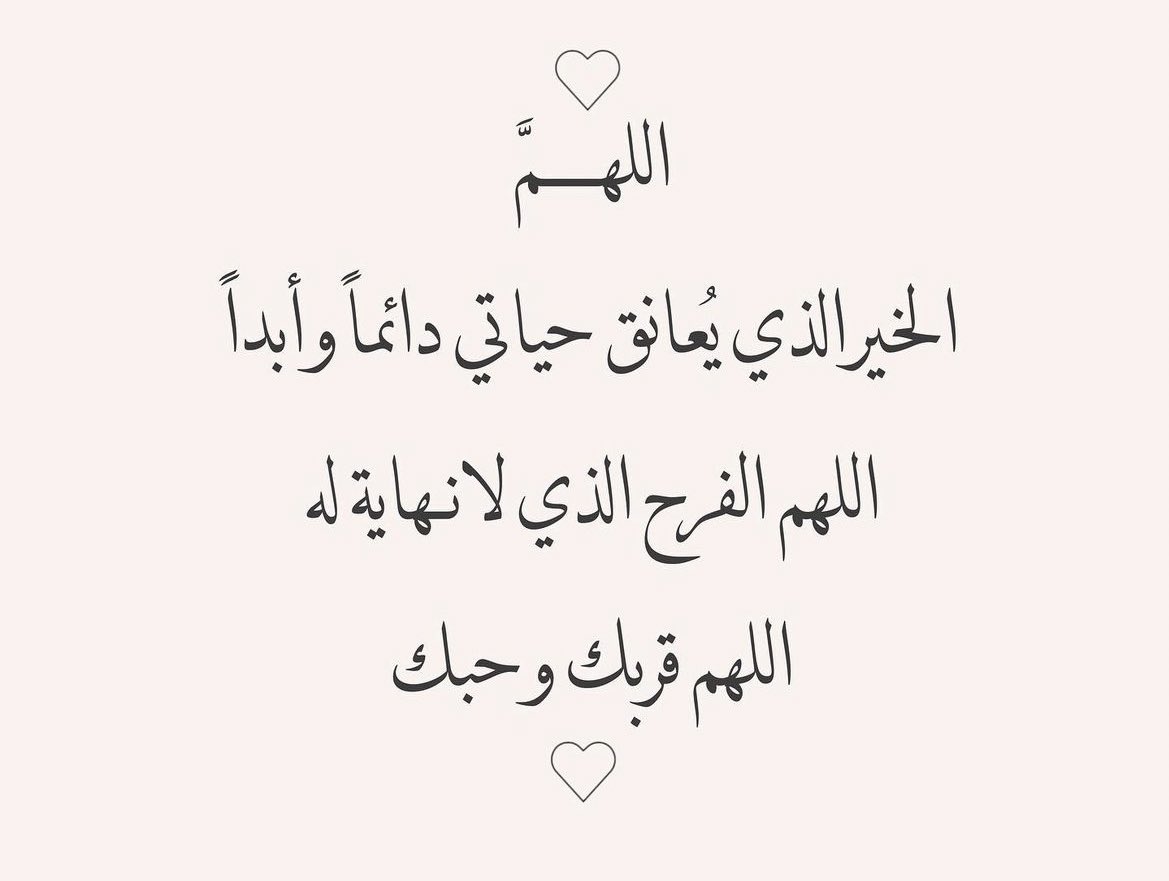 اللهـــمَّ
الخير الذي يُعانق حياتي دائماً وأبداً
اللهم الفرح الذي لا نهاية له
اللهم قربك وحبك